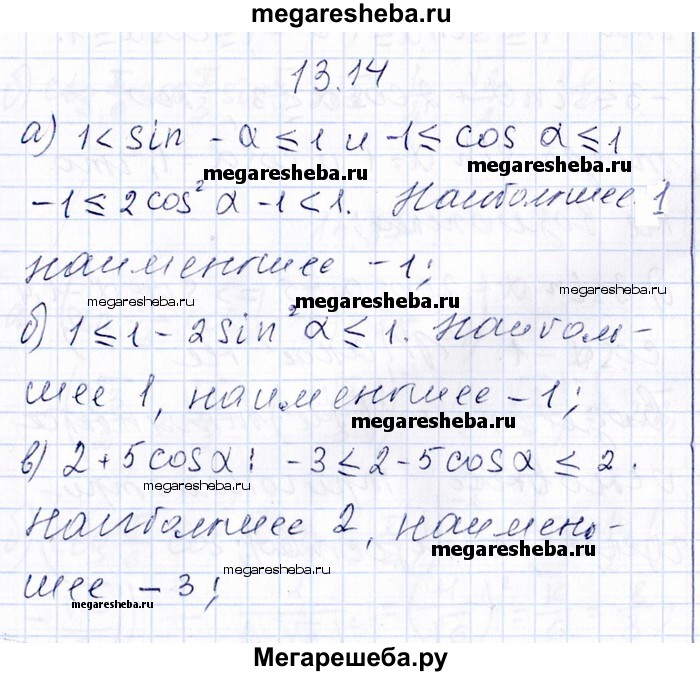 megaresheba.ru
13.14
а) 1 < sin - α ≤ 1 и -1 ≤ cos α ≤ 1
megaresheba.ru megaresheba.ru
-1 ≤ 2 cos² α - 1 < 1. Наибольшее 1
наименьшее -1;
megaresheba.ru megaresheba.ru megaresheba.ru
б) 1 ≤ 1 - 2 sin² α ≤ 1. Наиболь-
шее 1, наименьшее -1;
megaresheba.ru
в) 2 + 5 cos α: -3 ≤ 2 - 5 cos α ≤ 2.
megaresheba.ru
Наибольшее 2, наимень-
megaresheba.ru
шее - 3;
megaresheba.ru
megaresheba.ru
Мегарешеба.ру